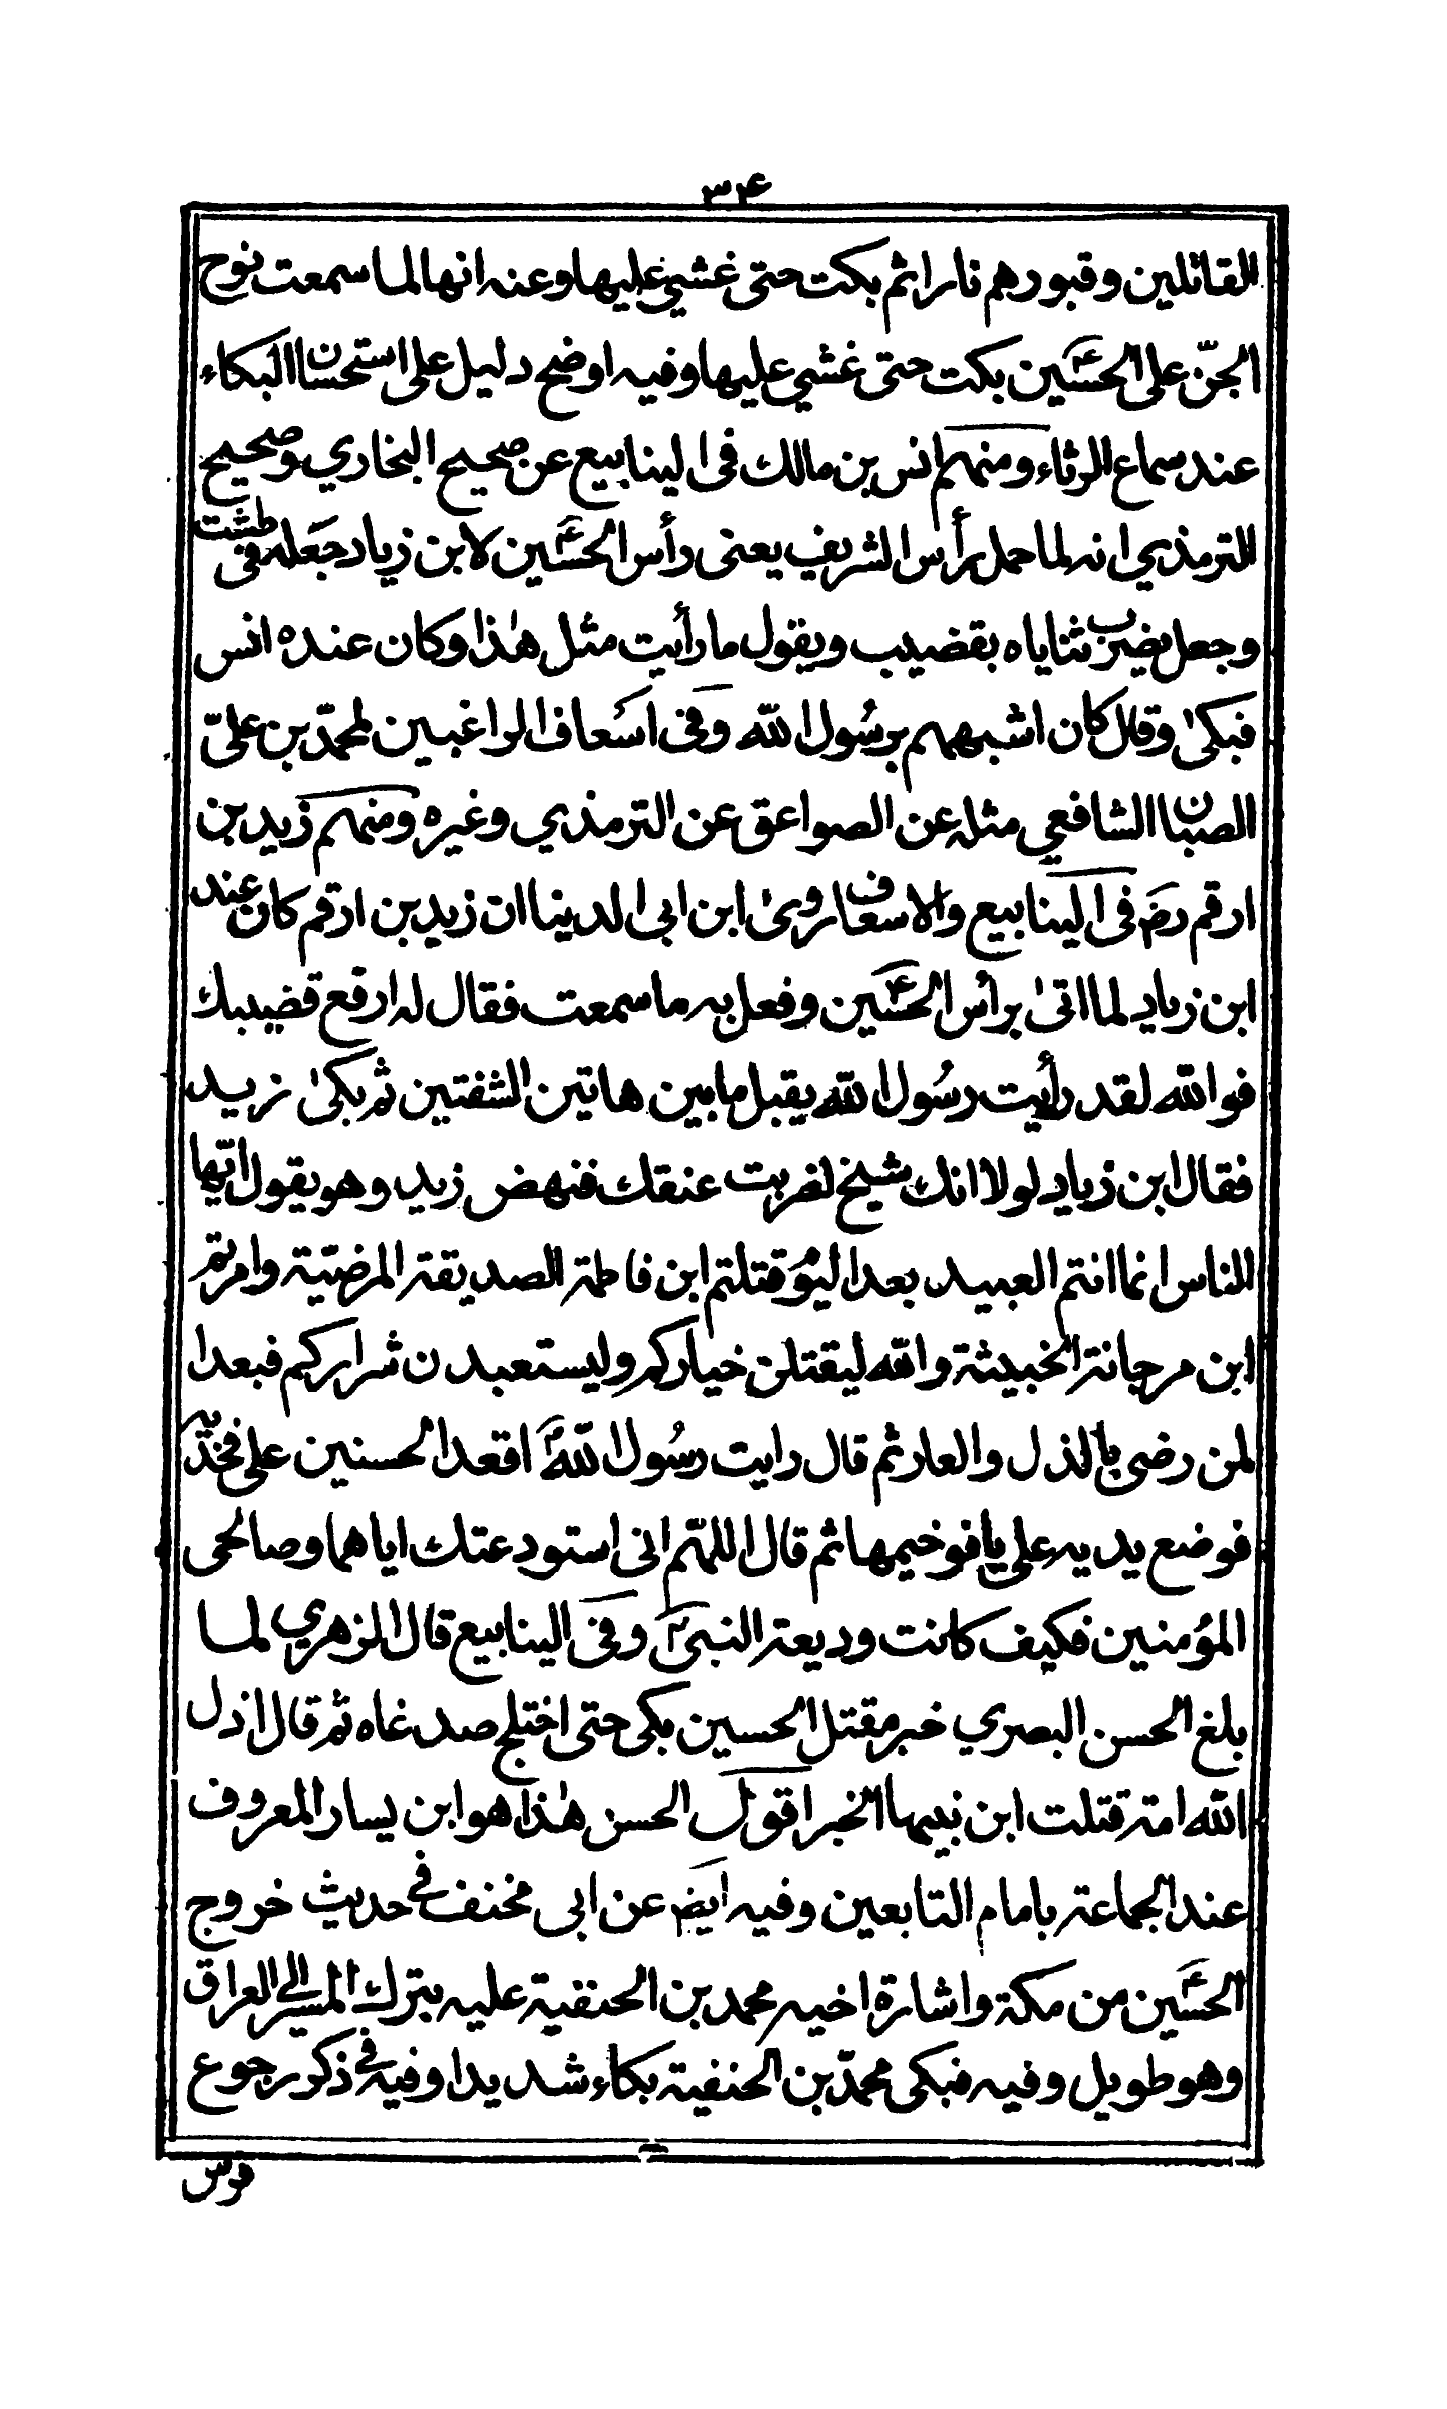 ٣٤
القائلين وقبورهم نارا ثم بكت حتى غشي عليها وعنه انها لما سمعت نوح
الجنّ على الحسينؑ بكت حتى غشي عليها وفيه اوضح دليل على استحسان البكاء
عند سماع الرثاء ومنهم انس بن مالك في الينابيع عن صحيح البخاري وصحيح
الترمذي انه لما حمل رأس الشريف يعنى رأس الحسينؑ لابن زياد جعله في طشت
وجعل يضرب ثناياه بقضيب ويقول ما رأيت مثل هٰذا وكان عنده انس
فبكىٰ وقال كان اشبههم برسُول الله وفي اسعاف الراغبين لمحمّد بن علىّ
الصبان الشافعي مثله عن الصواعق عن الترمذي وغيره ومنهم زيد بن
ارقم رضؓ في الينابيع والاسعاف روىٰ ابن ابى الدينا ان زيد بن ارقم كان عند
ابن زياد لما اتىٰ برأس الحسينؑ وفعل به ما سمعت فقال له ارفع قضيبك
فوالله لقد رأيت رسُول الله يقبل ما بين هاتين الشفتين ثم بكىٰ زيد
فقال ابن زياد لولا انك شيخ لضربت عنقك فنهض زيد وهو يقول ايّها
الناس انما انتم العبيد بعد اليوم قتلتم ابن فاطمة الصديقة المرضيّة وامرتم
ابن مرجانة الخبيثة والله ليقتلن خياركم وليستعبدن شراركم فبعدا
لمن رضى بالذل والعار ثم قال رايت رسُول اللهؐ اقعد الحسنين على فخذيه
فوضع يديه على يافوخيهما ثم قال اللهّم انى استودعتك اياهما وصالحى
المؤمنين فكيف كانت وديعة النبىؐ وفي الينابيع قال الزهري لما
بلغ الحسن البصري خبر مقتل الحسين بكى حتى اختلج صدغاه ثم قال اذل
الله امة قتلت ابن نبيها الخبر اقول الحسن هٰذا هو ابن يسار المعروف
عند الجماعة بامام التابعين وفيه ايضؐ عن ابى مخنف في حديث خروج
الحسينؑ من مكة واشارة اخيه محمد بن الحنفية عليه بترك المسير الى العراق
وهو طويل وفيه فبكى محمّد بن الحنفية بكاء شديدا وفيه في ذكر رجوع
فرس